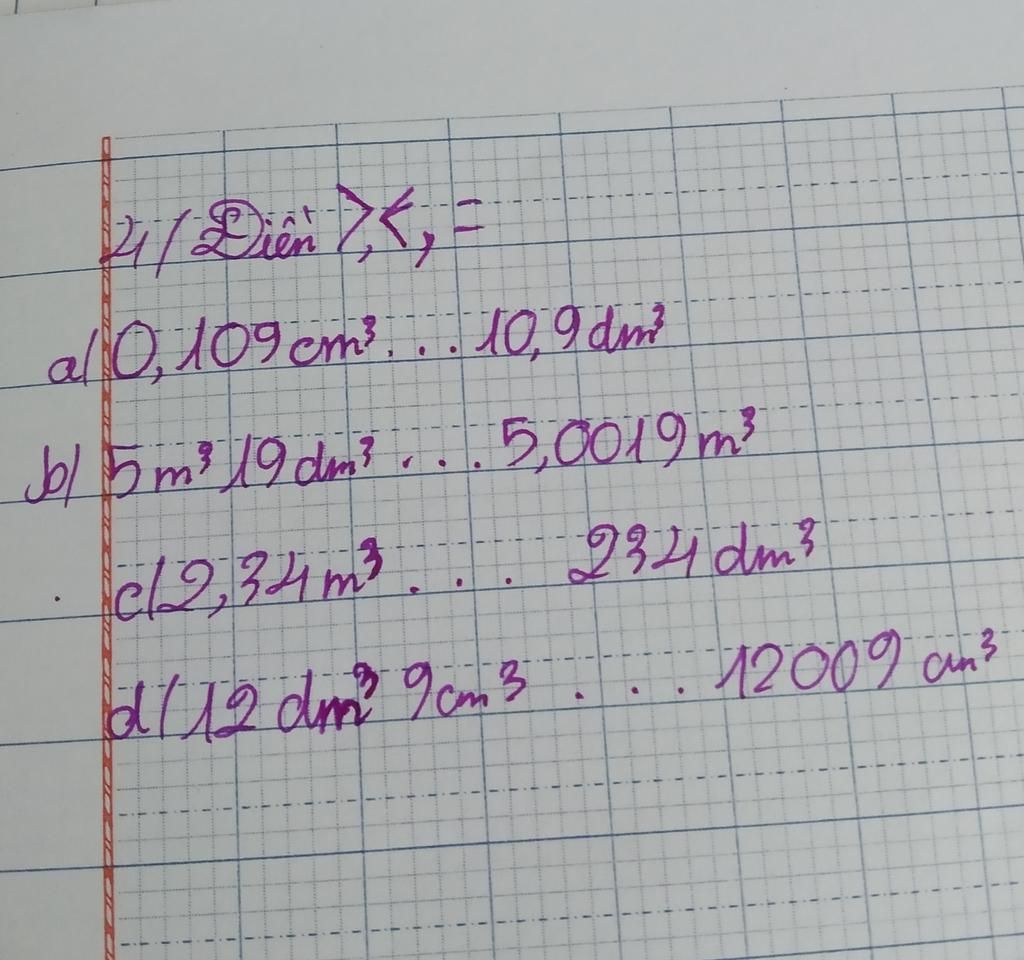 4/ Điền >, <, =
a/ 0,109 cm³ ... 10,9 dm³
b/ 5 m³ 19 dm³ ... 5,0019 m³
c/ 2,34 m³ ... 234 dm³
d/ 12 dm³ 9 cm³ ... 12009 cm³